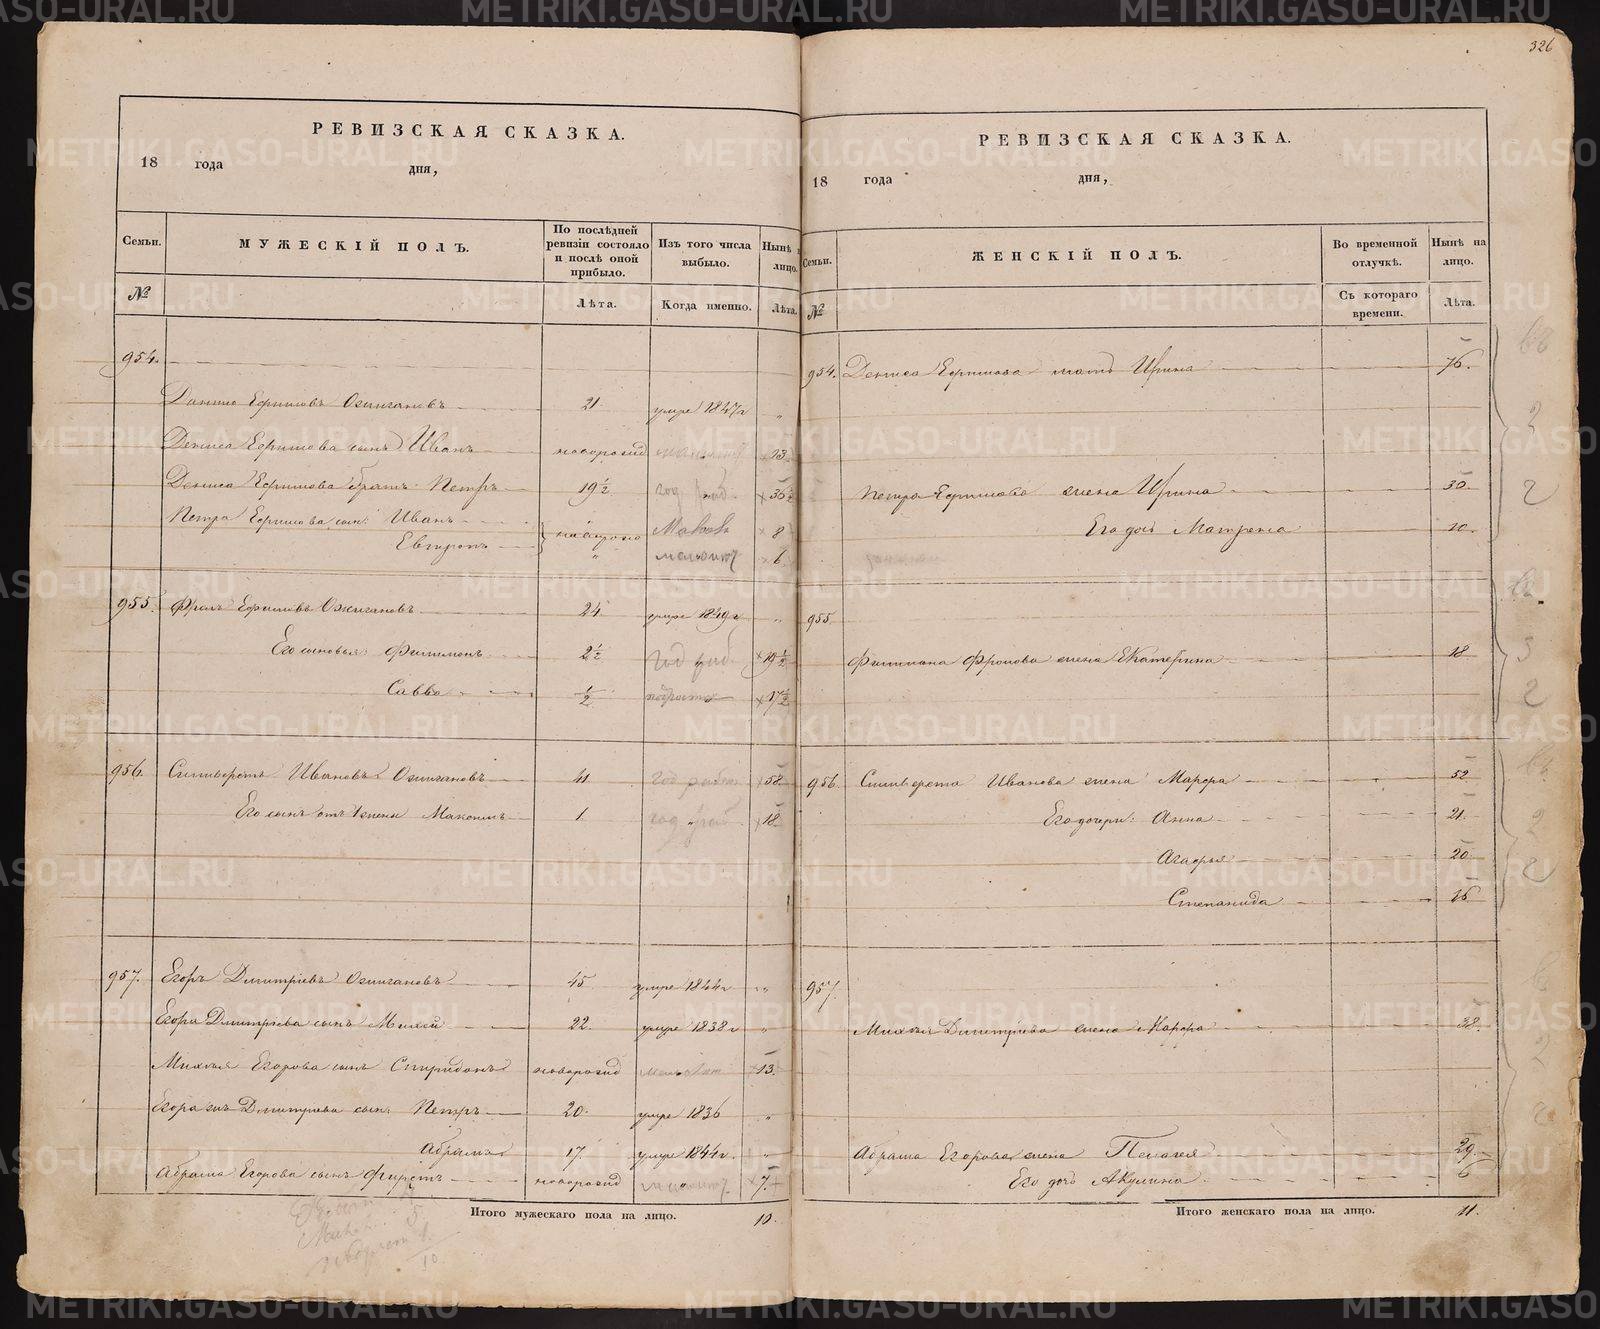 326
РЕВИЗСКАЯ СКАЗКА.
18 года дня,
Семьи.
МУЖЕСКІЙ ПОЛЪ.
По послѣдней ревизіи состояло и послѣ оной прибыло.
Изъ того числа выбыло.
Нынѣ лицо.
№
Лѣта.
Когда именно.
Лѣта.
954.
Данило Ефимовъ Ожигановъ 21 умре 1847 г
Дениса Ефимова сынъ Иванъ новорожд 13
Дениса Ефимова братъ Петръ 19½ год раб. 36½
Петра Ефимова сын: Иванъ 8
малолит 6
955. Фролъ Ефимовъ Ожигановъ 24 умре 1849 г
Его сыновья: Филимонъ 2½ год раб. 19½
Савва ½ 17½
956. Силиверстъ Ивановъ Ожигановъ 41 58
Его сынъ отъ 1 жены Максимъ 1 год раб. 18
957. Егоръ Дмитріевъ Ожигановъ 45 умре 1844 г
Егора Дмитріева сынъ Михей 22 умре 1838 г
Михея Егорова сынъ Спиридонъ новорожд 13
Егора Дмитріева сын: Петръ 20 умре 1836
Абрамъ 17 умре 1844 г.
Абрама Егорова сынъ Фирстъ новорожд 7
Итого мужескаго пола на лицо. 10.
5
1
10
РЕВИЗСКАЯ СКАЗКА.
18 года дня,
Семьи.
ЖЕНСКІЙ ПОЛЪ.
Во временной отлучкѣ.
Нынѣ на лицо.
№
Съ котораго времени.
Лѣта.
954. Дениса Ефимова мать Ирина 76.
Петра Ефимова жена Ирина 30
Его дочь Матрена 10
955
Филимона Фролова жена Екатерина 18
956 Силиверста Иванова жена Марфа 52
Его дочери: Анна 21
Агафья 20
Степанида 16
957.
Михея Дмитріева жена Марфа 38
Абрама Егорова жена Пелагея 29
Его дочь Акулина 6
Итого женскаго пола на лицо. 11.
METRIKI.GASO-URAL.RU